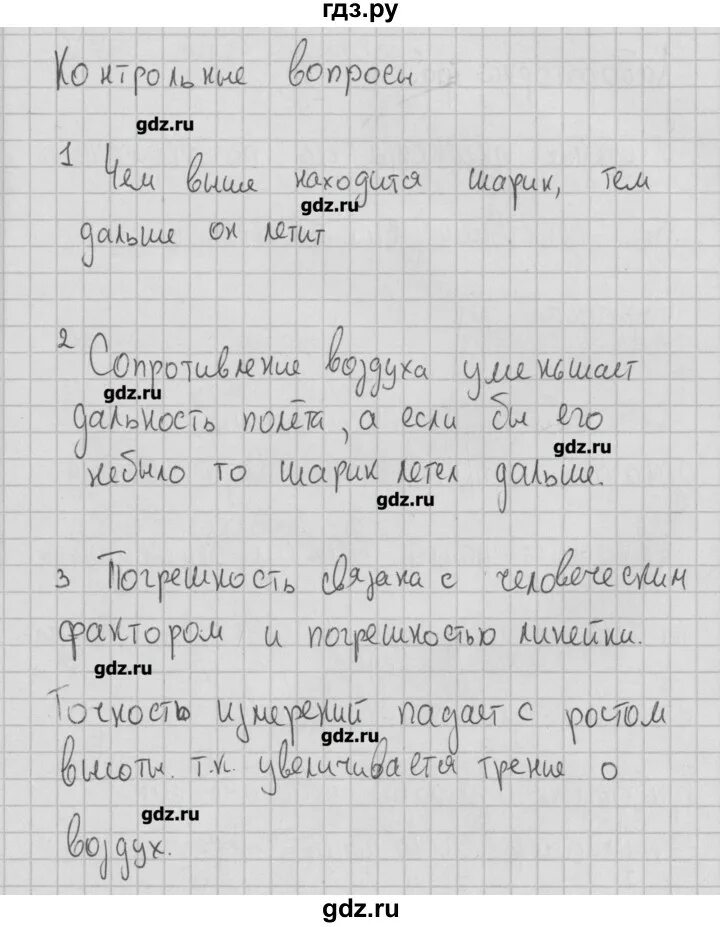 гдз.ру
Контрольные вопросы
gdz.ru
1 Чем выше находится шарик, тем
gdz.ru
дальше он летит
2 Сопротивление воздуха уменьшает
gdz.ru
дальность полёта, а если бы его
gdz.ru
небыло то шарик летел дальше.
gdz.ru
3 Погрешность связана с человеческим
фактором и погрешностью линейки.
gdz.ru
Точность измерений падает с ростом
gdz.ru
высоты. т.к. увеличивается трение о
gdz.ru
воздух.
gdz.ru